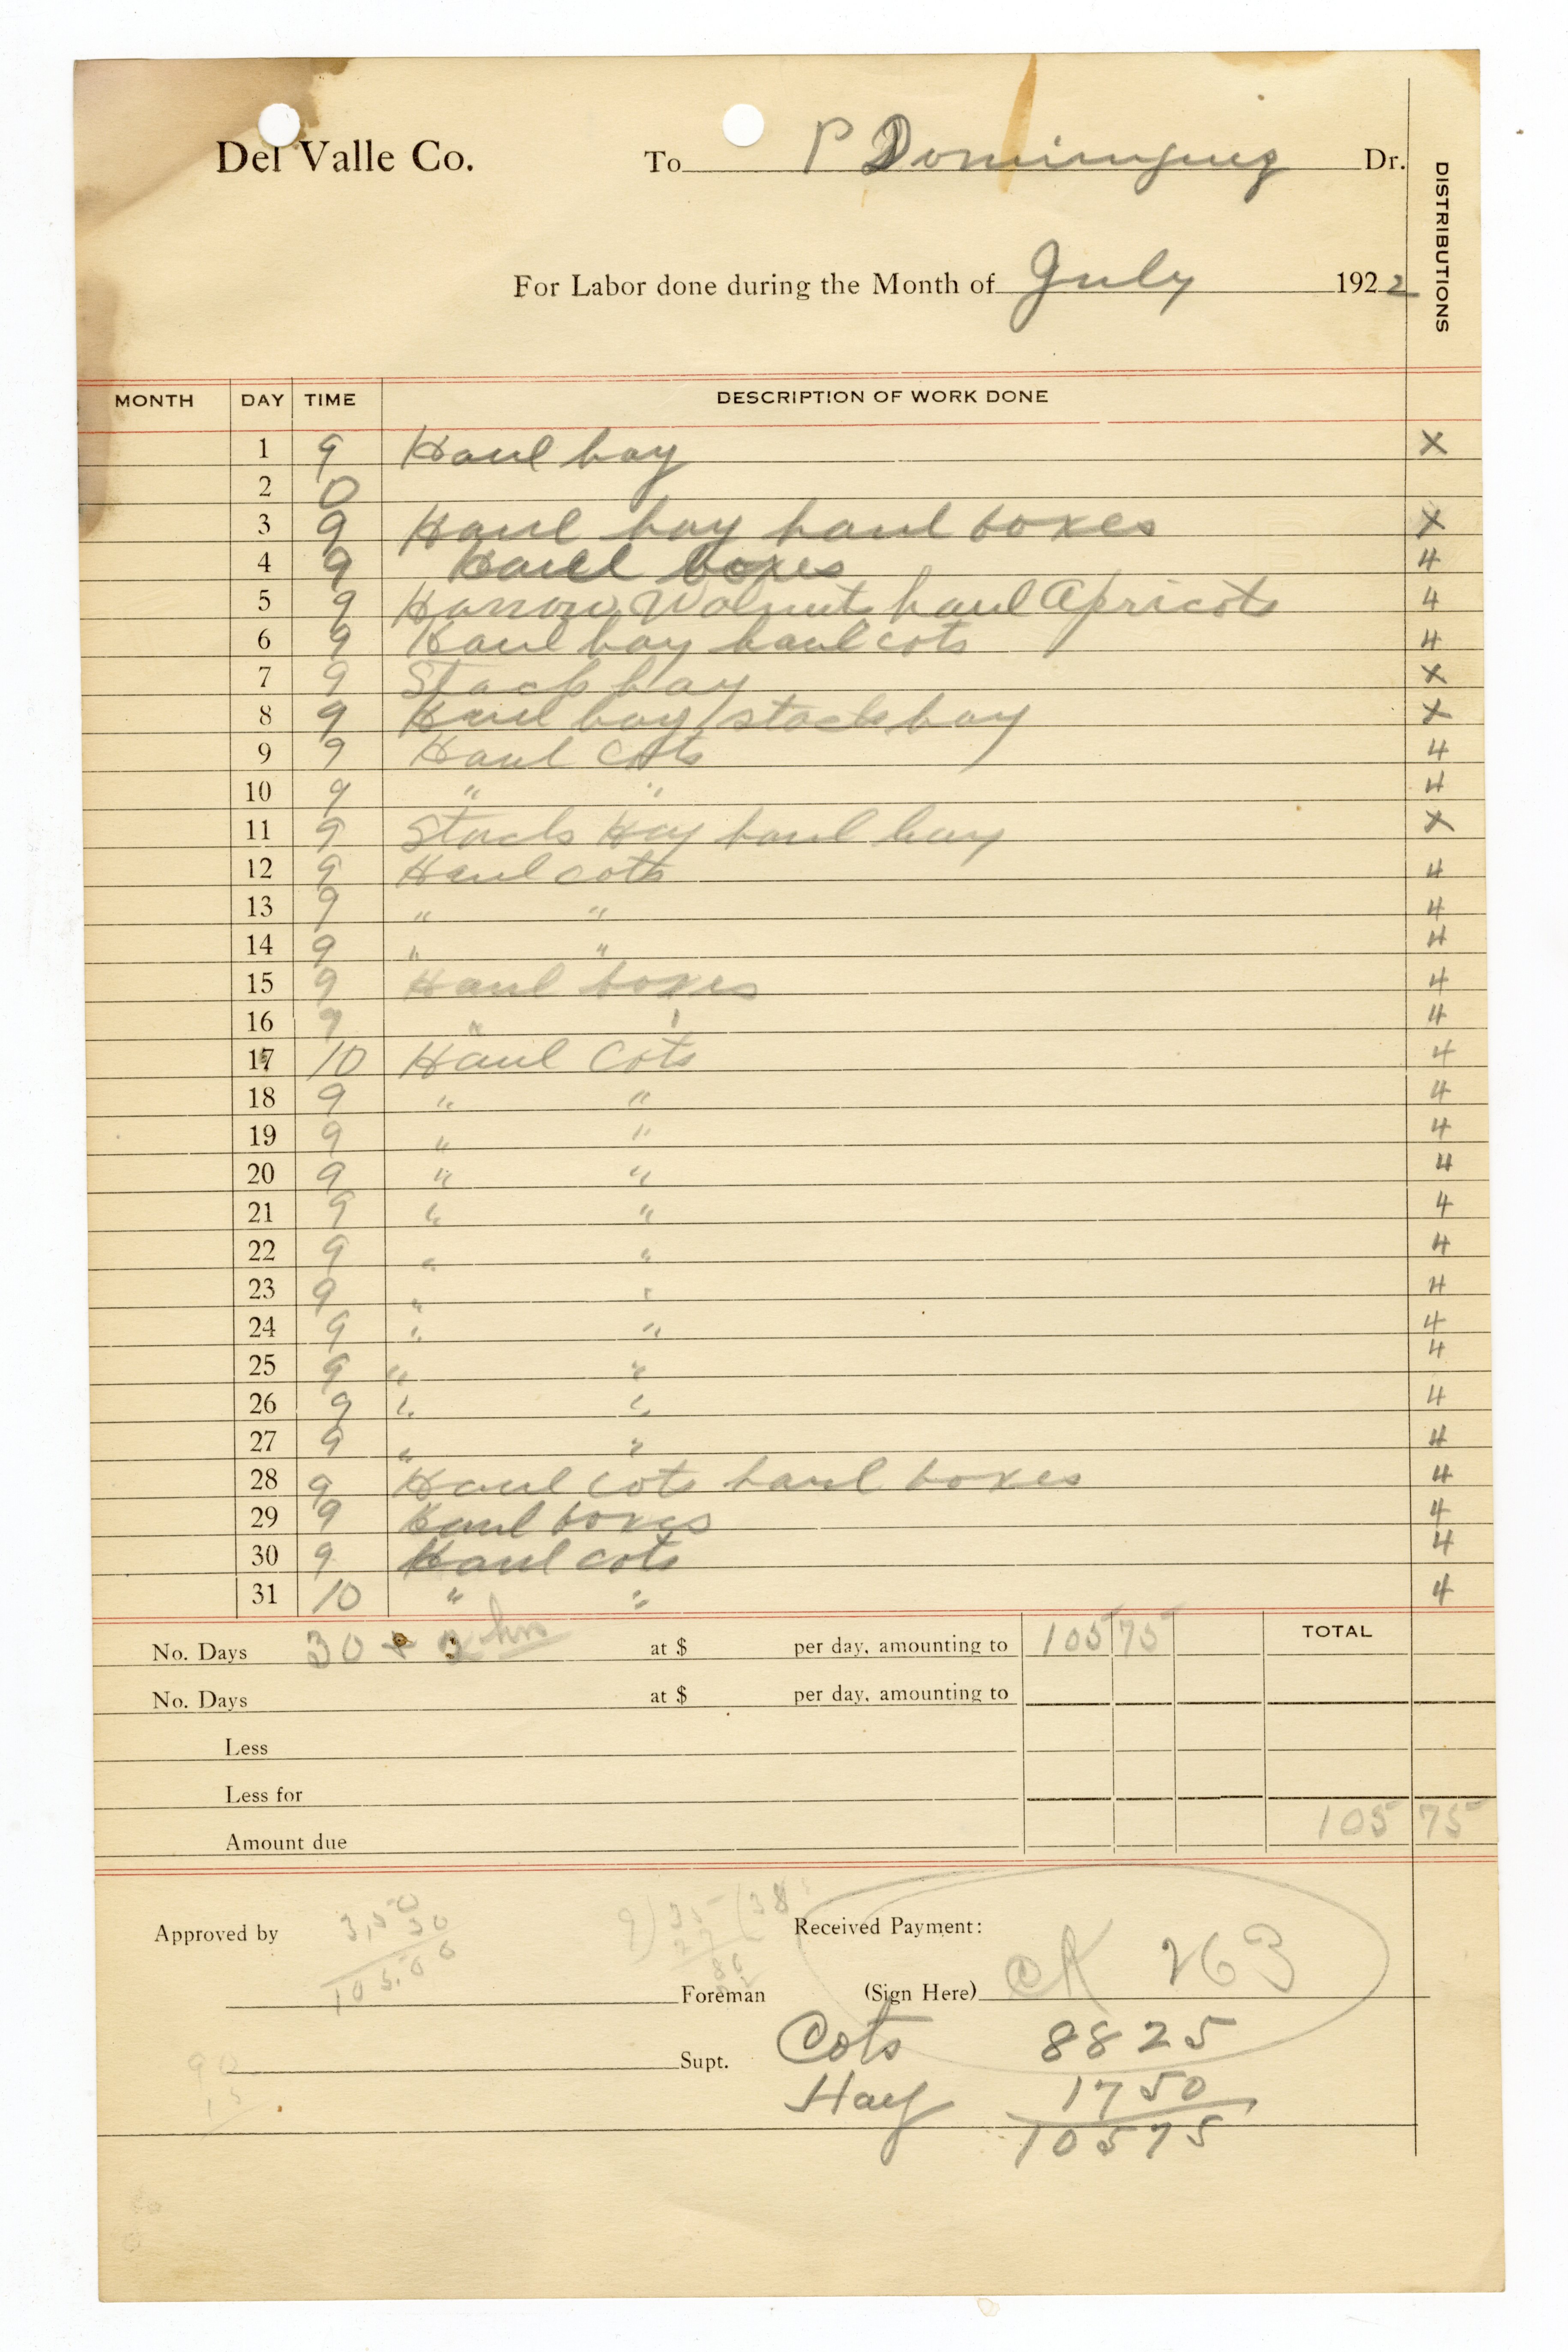 Del Valle Co. To P Dominguez Dr.
DISTRIBUTIONS
For Labor done during the Month of July 1922
MONTH DAY TIME DESCRIPTION OF WORK DONE
1 9 Haul hay X
2 0
3 9 Haul hay haul boxes X
4 9 Haul boxes 4
5 9 Harrow Walnuts haul Apricots 4
6 9 Haul hay haul cots 4
7 9 Stack hay X
8 9 Haul hay stack hay X
9 9 Haul Cots 4
10 9 " " 4
11 9 Stack Hay haul hay X
12 9 Haul cots 4
13 9 " " 4
14 9 " " 4
15 9 Haul boxes 4
16 9 " " 4
17 10 Haul Cots 4
18 9 " " 4
19 9 " " 4
20 9 " " 4
21 9 " " 4
22 9 " " 4
23 9 " " 4
24 9 " " 4
25 9 " " 4
26 9 " " 4
27 9 " " 4
28 9 Haul cots haul boxes 4
29 9 Haul boxes 4
30 9 Haul cots 4
31 10 " " 4
No. Days 30 + 2 hrs at $ per day, amounting to 105 75 TOTAL
No. Days at $ per day, amounting to
Less
Less for
Amount due 105 75
Approved by 3,50 9) 35 (38 Received Payment:
30
105.00
Foreman (Sign Here) CK 263
Cots 8825
90 Supt.
15 Hay 1750
10575